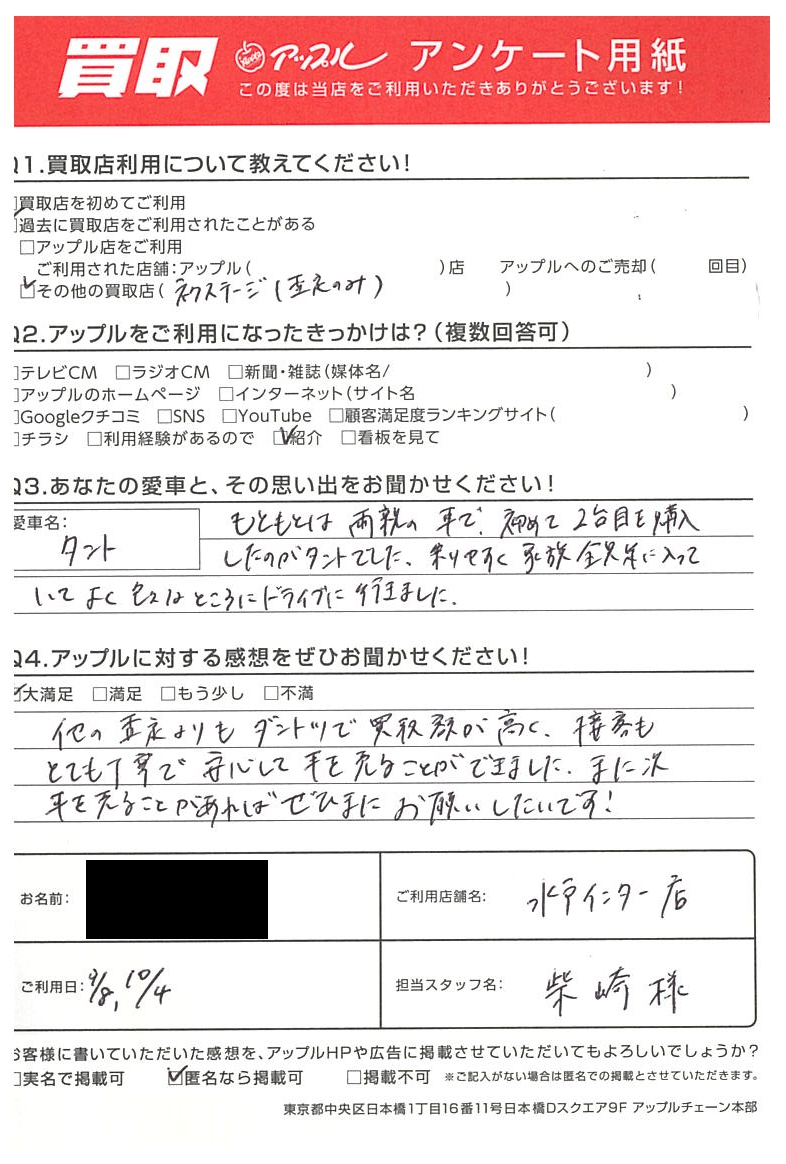 買取 アップル アンケート用紙
この度は当店をご利用いただきありがとうございます!
Q1.買取店利用について教えてください!
□買取店を初めてご利用
☑過去に買取店をご利用されたことがある
□アップル店をご利用
ご利用された店舗:アップル( )店 アップルへのご売却( 回目)
☑その他の買取店( ネクステージ(査定のみ) )
Q2.アップルをご利用になったきっかけは?(複数回答可)
□テレビCM □ラジオCM □新聞・雑誌(媒体名/ )
□アップルのホームページ □インターネット(サイト名 )
□Googleクチコミ □SNS □YouTube □顧客満足度ランキングサイト( )
□チラシ □利用経験があるので ☑紹介 □看板を見て
Q3.あなたの愛車と、その思い出をお聞かせください!
愛車名: もともとは両親の車で、初めて2台目を購入
タント したのがタントでした、乗りやすく家族全員気に入って
いてよく色々なところにドライブに行きました.
Q4.アップルに対する感想をぜひお聞かせください!
☑大満足 □満足 □もう少し □不満
他の査定よりもダントツで買取額が高く、接客も
とても丁寧で安心して車を売ることができました.また次
車を売ることがあればぜひまたお願いしたいです!
お名前: ご利用店舗名: 水戸インター店
ご利用日: 9/8, 10/4 担当スタッフ名: 柴崎様
お客様に書いていただいた感想を、アップルHPや広告に掲載させていただいてもよろしいでしょうか?
□実名で掲載可 ☑匿名なら掲載可 □掲載不可 ※ご記入がない場合は匿名での掲載とさせていただきます。
東京都中央区日本橋1丁目16番11号日本橋Dスクエア9F アップルチェーン本部